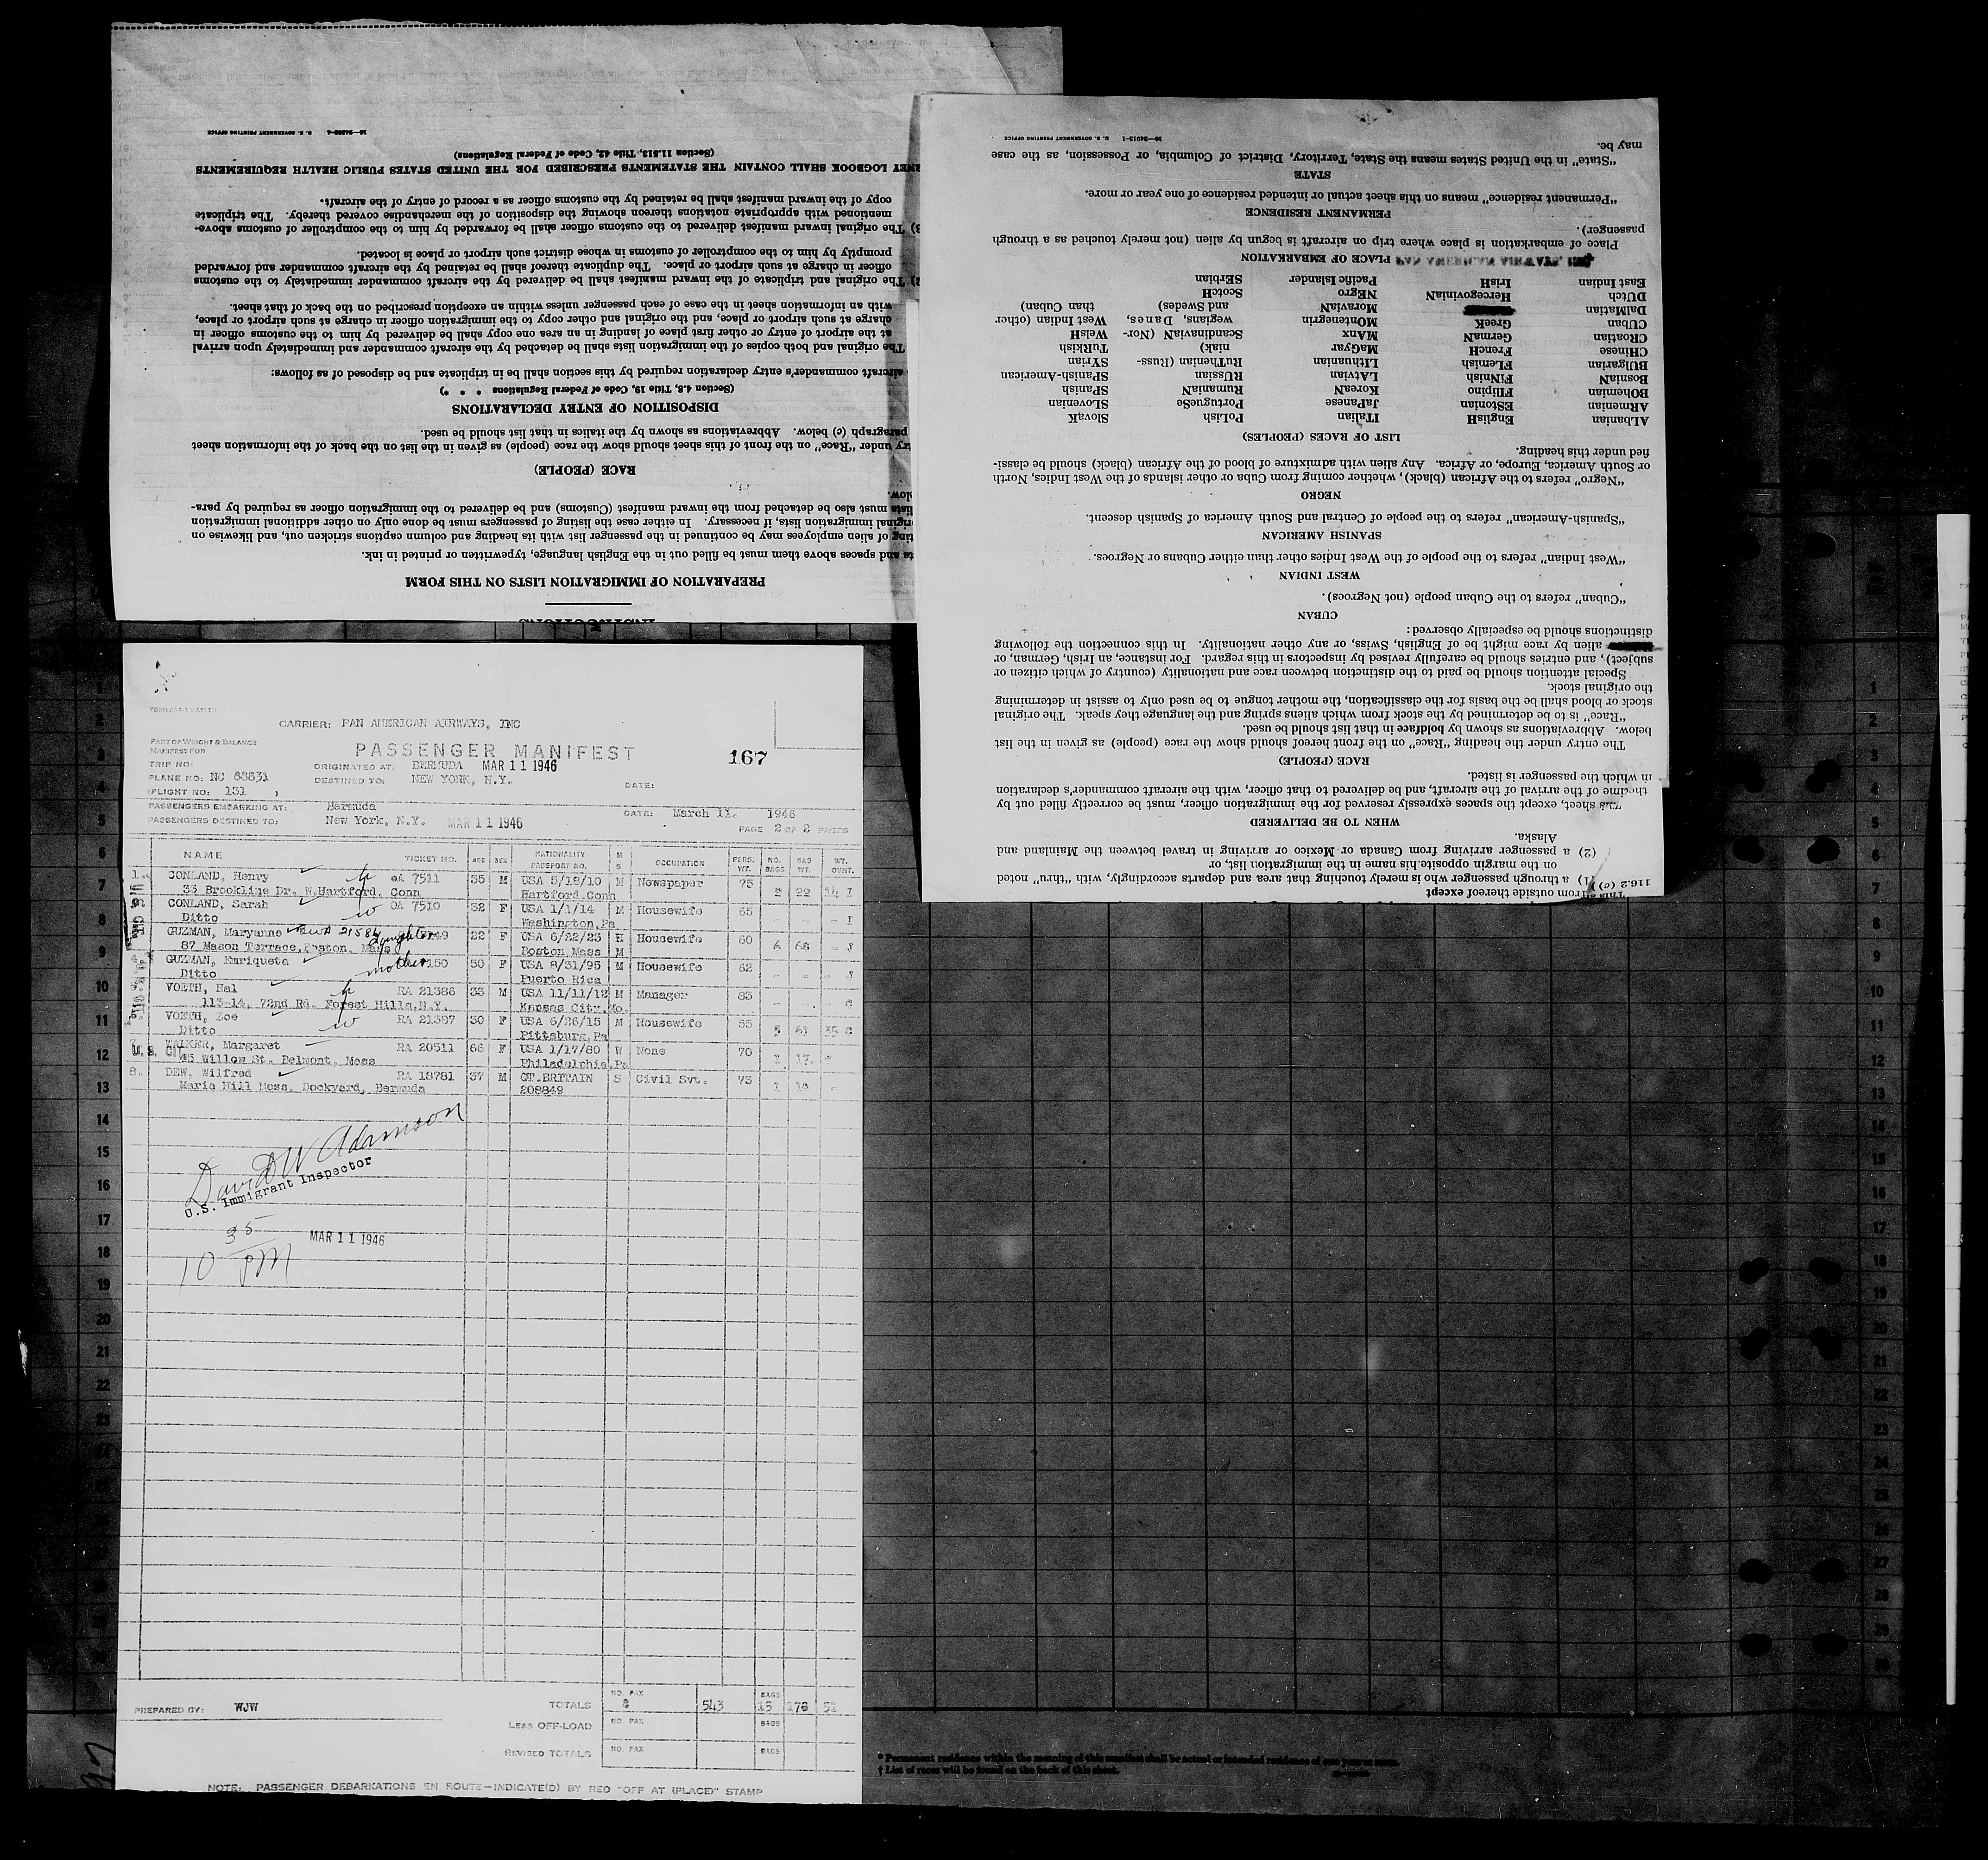 CARRIER: PAN AMERICAN AIRWAYS, INC
PASSENGER MANIFEST
167
PART OF WEIGHT & BALANCE
MANIFEST FOR
TRIP NO:
PLANE NO: NC 88831
(FLIGHT NO: 131 )
ORIGINATED AT: BERMUDA MAR 11 1946
DESTINED TO: NEW YORK, N.Y.
DATE:
PASSENGERS EMBARKING AT: Bermuda
DATE: March 11. 1946
PASSENGERS DESTINED TO: New York, N.Y. MAR 11 1946
PAGE 2 OF 2 PAGES
NAME TICKET NO. AGE SEX NATIONALITY PASSPORT NO. M S OCCUPATION PERS. WT. NO. BAGS BAG WT. WT. OVWT.
1. CONLAND, Henry OA 7511 35 M USA 5/19/10 M Newspaper 75
33 Brookline Dr. W.Hartford. Conn Hartford.Conn 2 22
CONLAND, Sarah w OA 7510 32 F USA 1/1/14 M Housewife 65
Ditto Washington,Pa
GUZMAN, Maryanne 22 F USA 6/22/23 M Housewife 60
87 Mason Terrace,Boston. Mass daughter Boston Mass
GUZMAN, Enriqueta mother 50 F USA 8/31/95 M Housewife 62
Ditto Puerto Rica
VOETH, Hal RA 21386 33 M USA 11/11/12 M Manager 83
113-14. 72nd Rd. Forest Hills,N.Y. Kansas City,Mo.
VOETH, Zoe w RA 21387 30 F USA 6/26/15 M Housewife 55
Ditto Pittsburg,Pa
WALKER, Margaret RA 20511 66 F USA 1/17/80 W None 70
U.S. CIT. 45 Willow St. Belmont, Mass Philadelphia,Pa
8. DEW, Wilfred RA 18781 37 M GT.BRITAIN S Civil Svt. 73
Maria Hill Mess, Dockyard, Bermuda 208849
David W Adamson
U.S. Immigrant Inspector
10 35 PM
MAR 11 1946
PREPARED BY: WJW
TOTALS NO. PAX 8 543 BAGS 15 176 51
LESS OFF-LOAD NO. PAX BAGS
REVISED TOTALS NO. PAX BAGS
NOTE: PASSENGER DEBARKATIONS EN ROUTE—INDICATE(D) BY RED "OFF AT (PLACE)" STAMP
PREPARATION OF IMMIGRATION LISTS ON THIS FORM
and spaces above them must be filled out in the English language, typewritten or printed in ink.
of alien employees may be continued in the passenger list with its heading and column captions stricken out, and likewise on
immigration lists, if necessary. In either case the listing of passengers must be done only on other additional immigration
lists must also be detached from the inward manifest (Customs) and be delivered to the immigration officer as required by para-
RACE (PEOPLE)
under "Race" on the front of this sheet should show the race (people) as given in the list on the back of the information sheet
paragraph (c) below. Abbreviations as shown by the italics in that list should be used.
DISPOSITION OF ENTRY DECLARATIONS
(Section 4.8, Title 19, Code of Federal Regulations * * *)
aircraft commander's entry declaration required by this section shall be in triplicate and be disposed of as follows:
The original and both copies of the immigration lists shall be detached by the aircraft commander and immediately upon arrival
at the airport of entry or other first place of landing in an area one copy shall be delivered by him to the customs officer in
charge at such airport or place, and the original and other copy to the immigration officer in charge at such airport or place,
with an information sheet in the case of each passenger unless within an exception prescribed on the back of that sheet.
2) The original and triplicate of the inward manifest shall be delivered by the aircraft commander immediately to the customs
officer in charge at such airport or place. The duplicate thereof shall be retained by the aircraft commander and forwarded
promptly by him to the comptroller of customs in whose district such airport or place is located.
3) The original inward manifest delivered to the customs officer shall be forwarded by him to the comptroller of customs above-
mentioned with appropriate notations thereon showing the disposition of the merchandise covered thereby. The triplicate
copy of the inward manifest shall be retained by the customs officer as a record of entry of the aircraft.
LOGBOOK SHALL CONTAIN THE STATEMENTS PRESCRIBED FOR THE UNITED STATES PUBLIC HEALTH REQUIREMENTS
(Section 11.513, Title 42, Code of Federal Regulations)
U. S. GOVERNMENT PRINTING OFFICE
116.2 (c)
from outside thereof except
(1) a through passenger who is merely touching that area and departs accordingly, with "thru" noted
on the margin opposite his name in the immigration list, or
(2) a passenger arriving from Canada or Mexico or arriving in travel between the Mainland and
Alaska.
WHEN TO BE DELIVERED
This sheet, except the spaces expressly reserved for the immigration officer, must be correctly filled out by
the time of the arrival of the aircraft, and be delivered to that officer, with the aircraft commander's declaration
in which the passenger is listed.
RACE (PEOPLE)
The entry under the heading "Race" on the front hereof should show the race (people) as given in the list
below. Abbreviations as shown by boldface in that list should be used.
"Race" is to be determined by the stock from which aliens spring and the language they speak. The original
stock or blood shall be the basis for the classification, the mother tongue to be used only to assist in determining
the original stock.
Special attention should be paid to the distinction between race and nationality (country of which citizen or
subject), and entries should be carefully revised by inspectors in this regard. For instance, an Irish, German, or
alien by race might be of English, Swiss, or any other nationality. In this connection the following
distinctions should be especially observed:
CUBAN
"Cuban" refers to the Cuban people (not Negroes).
WEST INDIAN
"West Indian" refers to the people of the West Indies other than either Cubans or Negroes.
SPANISH AMERICAN
"Spanish-American" refers to the people of Central and South America of Spanish descent.
NEGRO
"Negro" refers to the African (black), whether coming from Cuba or other islands of the West Indies, North
or South America, Europe, or Africa. Any alien with admixture of blood of the African (black) should be classi-
fied under this heading.
LIST OF RACES (PEOPLES)
ALbanian EnglisH ITalian PoLish SlovaK
ARmenian EStonian JaPanese PortugueSe SLOvenian
BOhemian FIlipino KoreaN RumaniaN SPanish
BosniaN FiNnish LAtvian RUssian SPanish-American
BUlgarian FLemish LIthuanian RuThenian (Russ- SYrian
CHinese FrencH MaGyar niak) TuRkish
CRoatian GermaN MAnx Scandinavian (Nor- WelsH
CUban GreeK MOntenegrin wegians, Danes, West Indian (other
DalMatian MoraviaN and Swedes) than Cuban)
DUtch HercegoviniaN NEgro ScotcH
East Indian IrisH Pacific Islander SErbian
PLACE OF EMBARKATION PAN AMERICAN AIRWAYS, INC.
Place of embarkation is place where trip on aircraft is begun by alien (not merely touched as a through
passenger).
PERMANENT RESIDENCE
"Permanent residence" means on this sheet actual or intended residence of one year or more.
STATE
"State" in the United States means the State, Territory, District of Columbia, or Possession, as the case
may be.
16—34913-1 U. S. GOVERNMENT PRINTING OFFICE
* Permanent residence within the meaning of this manifest shall be actual or intended residence of one year or more.
† List of races will be found on the back of this sheet.